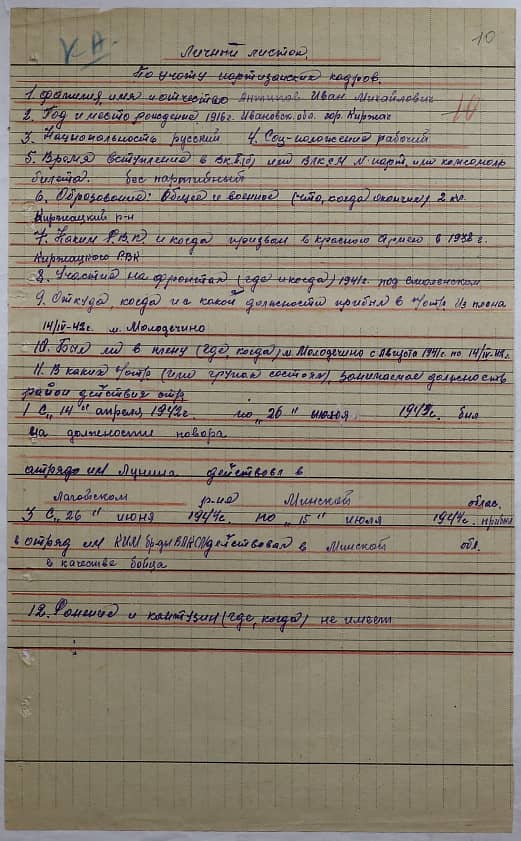 К.А.
10
Личний листок.
По учоту партизанских кадров.
10
1. Фамилия, имя и отчество Антипов Иван Михайлович
2. Год и место рождение 1916г. Ивановск. обл. гор. Киржач
3. Националность русский 4. Соц-положение рабочий
5. Время вступление в ВК.П.(б) или ВЛКСМ № парт. или комсомоль
билета. бес партийный
6. Оброзование: Общее и военное (что, когда окончил) 2 кл.
Киржацкий р-н
7. Каким Р.В.К. и когда призван в красного Армею в 1938 г.
Киржацкого РВК
8. Участие на фронтах (где и когда) 1941г. под Смоленском
9. Откуда, когда и с какой должности прибыл в п/отр. Из плена
14/IV-42г. м. Молодечино
10. Был ли в плену (где, когда) м. Молодечино с Августа 1941г. по 14/IV-42г.
11. В каких п/отр (или групах состоял), занимаемое должность
район действия отр
1 С „14" апреля 1942г. по „26" июня 1942г. был
на должности повора
атряд им Лунина действовл в
Лаговском р-на Минской облас.
3 С „26" июня 1944г. по „15" июля 1944г. прибыл
в отряд им КИМ бр-ды действовал в Минской обл.
в качестве бойца
12. Ранение и контузии (где, когда) не имеет